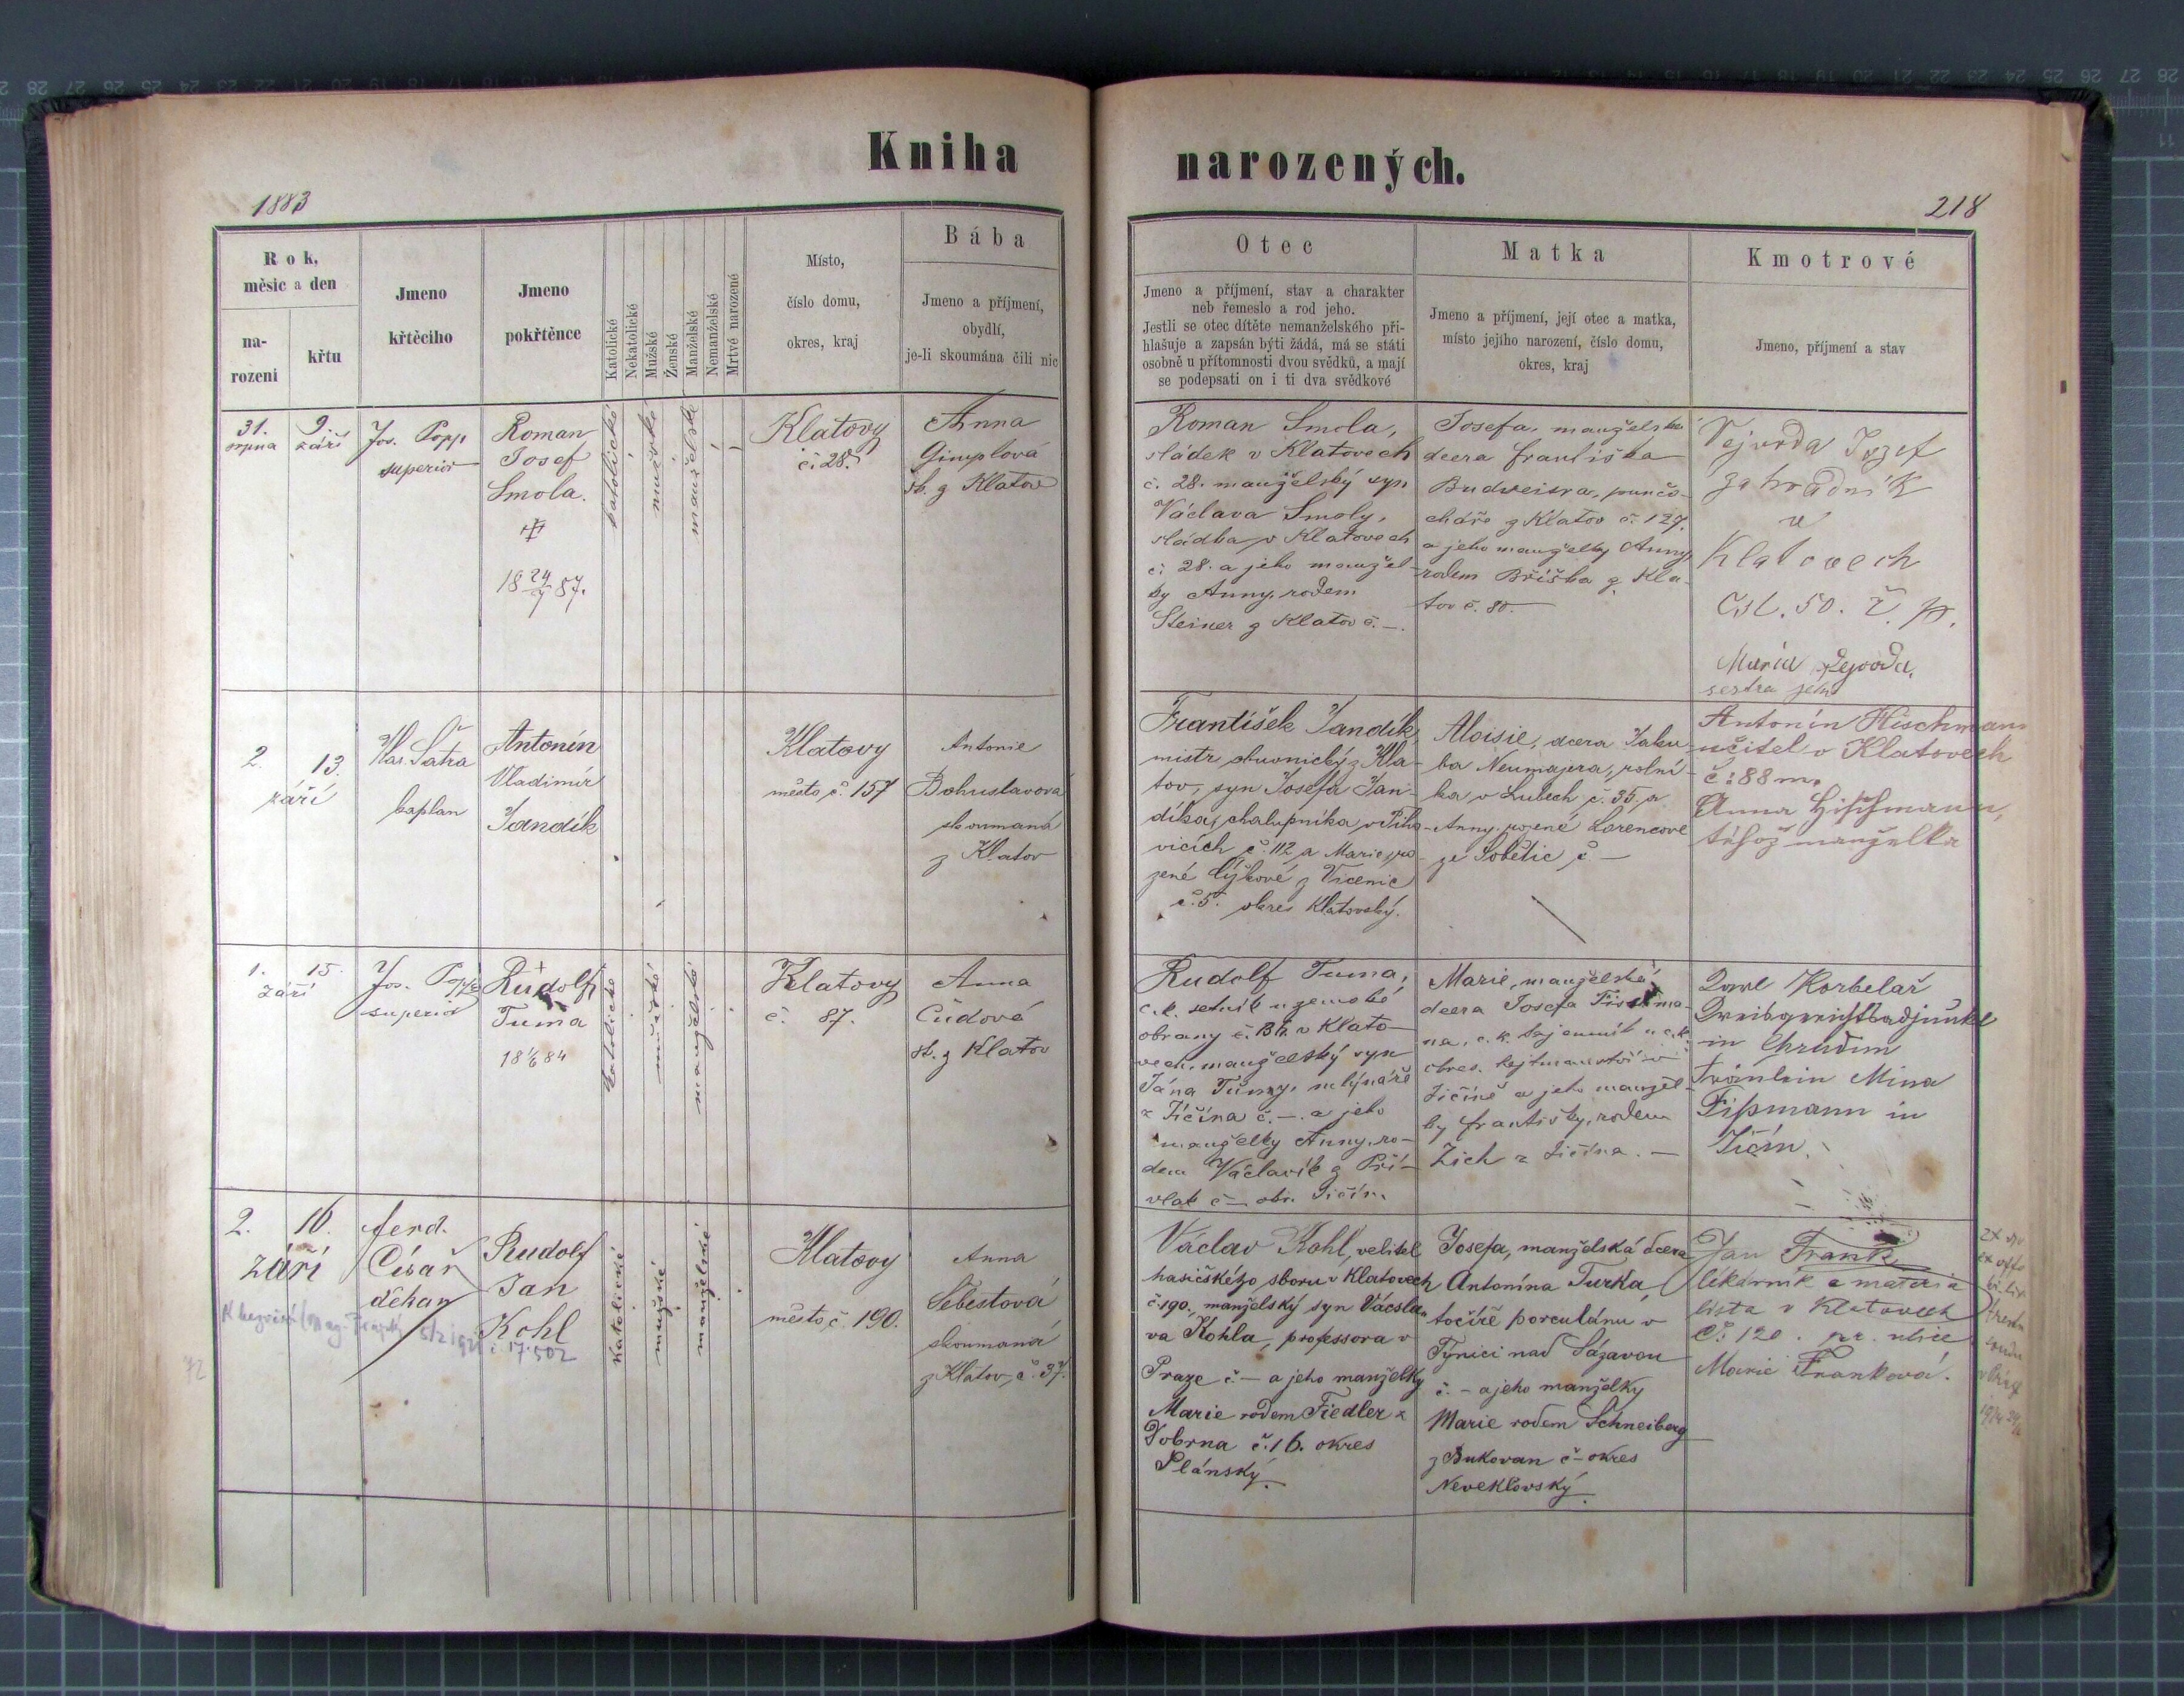 Kniha narozených.
1883
218
Rok, měsíc a den
na-
rozeni
křtu
Jmeno
křtěcího
Jmeno
pokřtěnce
Katolické
Nekatolické
Mužské
Ženské
Manželské
Nemanželské
Mrtvé narozené
Místo,
číslo domu,
okres, kraj
Bába
Jmeno a příjmení,
obydlí,
je-li skoumána čili nic
Otec
Jmeno a příjmení, stav a charakter
neb řemeslo a rod jeho.
Jestli se otec dítěte nemanželského při-
hlašuje a zapsán býti žádá, má se státi
osobně u přítomnosti dvou svědků, a mají
se podepsati on i ti dva svědkové
Matka
Jmeno a příjmení, její otec a matka,
místo jejího narození, číslo domu,
okres, kraj
Kmotrové
Jmeno, příjmení a stav
31.
srpna
9.
září
Jos. Popp
superior
Roman
Josef
Smola.
18 24/7 87.
katolické
mužské
manželské
Klatovy
č. 28.
Anna
Gimplová
sk. z Klatov
Roman Smola,
sládek v Klatovech
č. 28. manželský syn
Václava Smoly,
sládka v Klatovech
č. 28. a jeho manžel-
ky Anny, rodem
Steiner z Klatov č. —.
Josefa, manželská
dcera Františka
Budweisra, punčo-
cháře z Klatov č. 127.
a jeho manželky Anny,
rodem Bříška z Kla-
tov č. 80. —
Vejvoda Jozef
zahradník
v
Klatovech
Čsl. 50. č. p.
Maria Vejvoda,
sestra jeho
2.
13.
září
Kar. Šatra
kaplan
Antonín
Vladimír
Jandík
Klatovy
město, č. 157
Antonie
Bohuslavová
skoumaná
z Klatov
František Jandík,
mistr obuvnický z Kla-
tov, syn Josefa Jan-
díka, chalupníka v
vicích č. 112 a Marie, ro-
zené Čížkové z Vícenic
č. 5. okres Klatovský.
Aloisie, dcera Jaku-
ba Neumajera, rolní-
ka v Lubech č. 35, a
Anny, rozené Lorencové
ze Sobětic č. —
Antonín Hischmann
učitel v Klatovech
č: 88 m.
Anna Hischmann,
téhož manželka
1.
15.
září
Jos. Popp
superior
Rudolf
Tuma
18 1/6 84
katolické
mužské
manželské
Klatovy
č. 87.
Anna
Čudová
sk. z Klatov
Rudolf Tuma,
c. k. setník u zemské
obrany č. v Klato-
vech, manželský syn
Jána Tumy, mlynáře
z Jičína č. —. a jeho
manželky Anny, ro-
dem Václavík z Pří-
vlak č — okr. Jičín.
Marie, manželská
dcera Josefa Fissma-
na, c. k. tajemník u c. k.
okres. hejtmanství v
Jičíně a jeho manžel-
ky Františky, rodem
Zich z Jičína. —
Karl Korbelař
Kreisgerichtsadjunkt
in Chrudim
Fräulein Mina
Fißmann in
Jičín.
2.
16.
září
Ferd.
Císař
děkan
Rudolf
Jan
Kohl
17.502
72
katolické
mužské
manželské
Klatovy
město, č. 190.
Anna
Šebestová
skoumaná
z Klatov, č. 37.
Václav Kohl, velitel
hasičského sboru v Klatovech
č. 190., manželský syn Václa-
va Kohla, professora v
Praze č — a jeho manželky
Marie rodem Fiedler z
Dobrna č. 16. okres
Plánský.
Josefa, manželská dcera
Antonína Turka,
točíře porculánu v
Týnici nad Sázavou
č. — a jeho manželky
Marie rodem Schneiberg
z Bukovan č — okres
Neveklovský.
Jan Frank
lékárník a materia
lista v Klatovech
Č: 120. pr. ulice
Marie Franková.